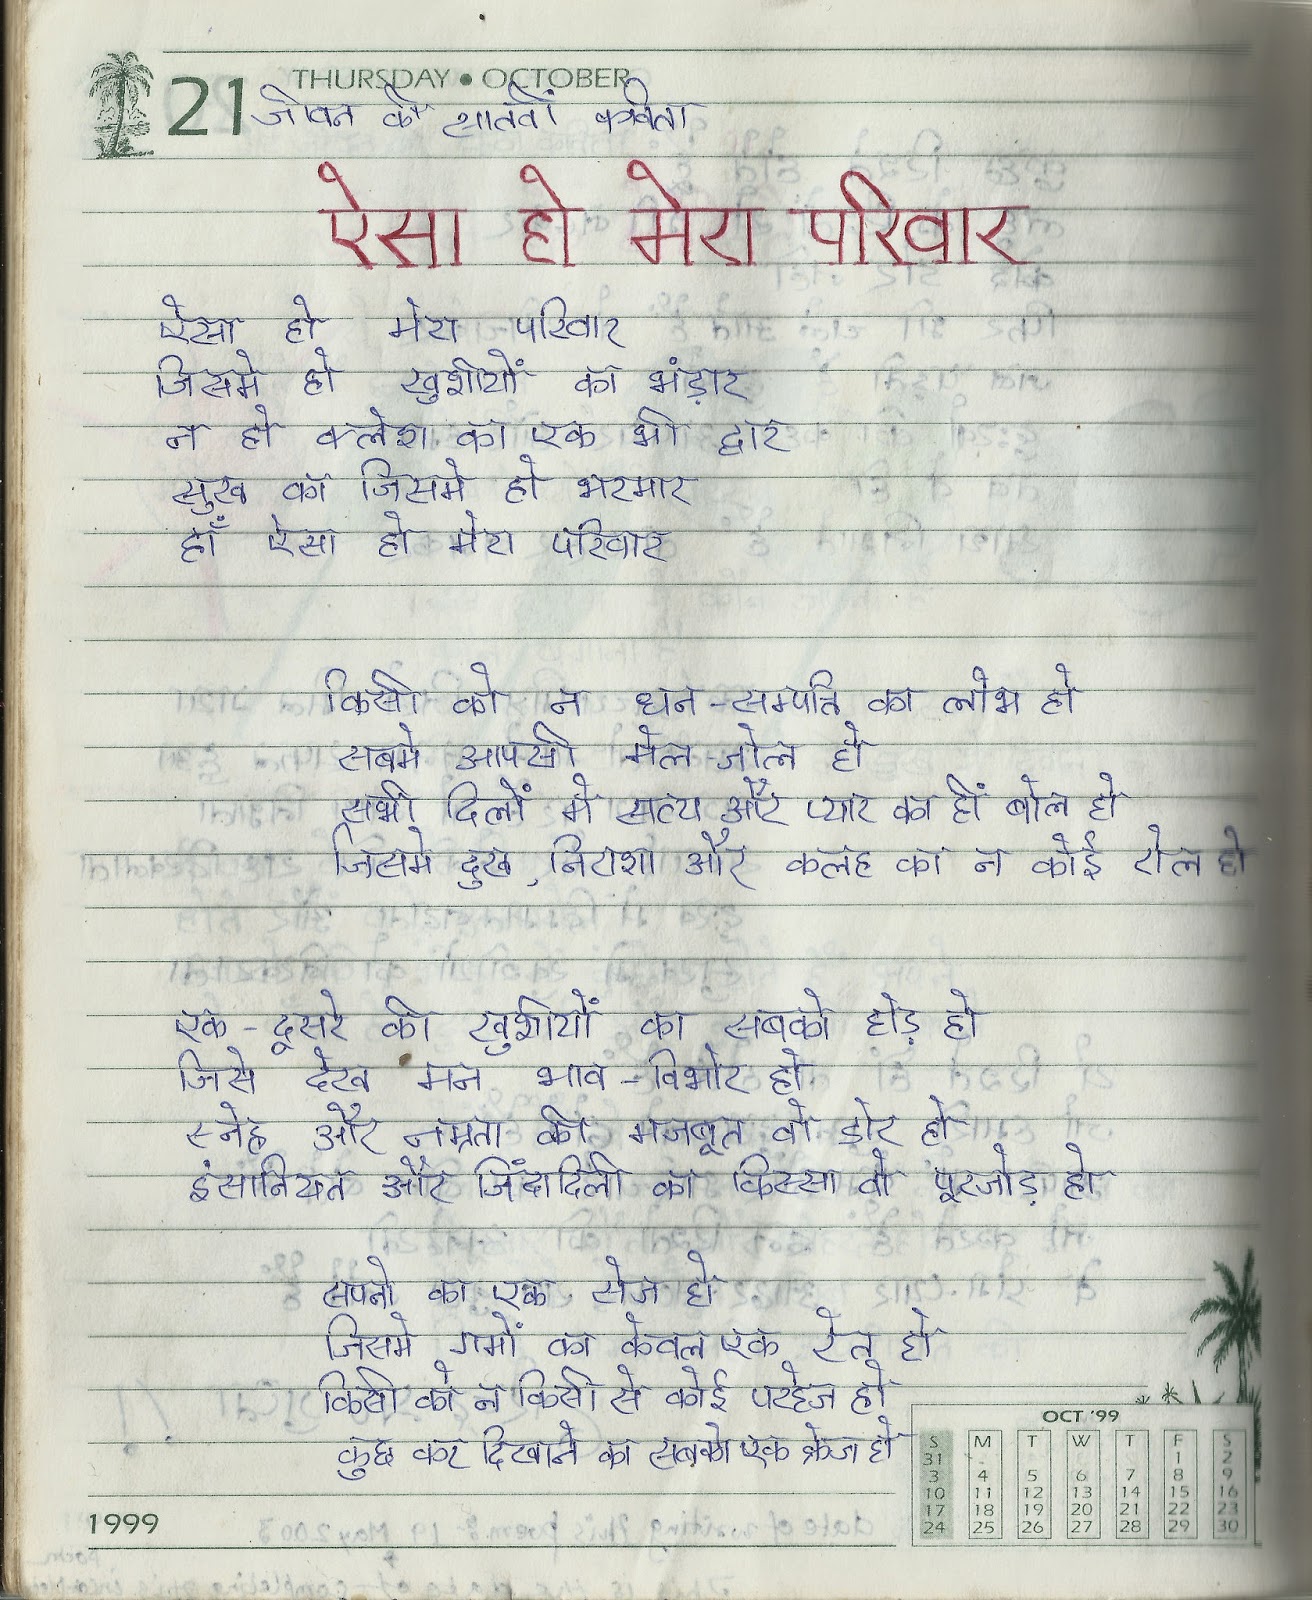 21 THURSDAY • OCTOBER
जीवन की सातवीं कविता
ऐसा हो मेरा परिवार
ऐसा हो मेरा परिवार
जिसमे हो खुशीयों का भंड़ार
न हो क्लेश का एक भी द्वार
सुख का जिसमे हो भरमार
हाँ ऐसा हो मेरा परिवार
किसी को न धन-सम्पति का लोभ हो
सबमे आपसी मेल-जोल हो
सभी दिलों मे सत्य और प्यार का हीं बोल हो
जिसमे दुख, निराशा और कलह का न कोई रोल हो
एक-दूसरे की खुशीयों का सबको होड़ हो
जिसे देख मन भाव-विभोर हो
स्नेह और नम्रता की मजबूत वो डोर हो
इंसानियत और जिंदादिली का किस्सा वो पूरजोड़ हो
सपनो का एक सेज हो
जिसमे गमों का केवल एक रेत हो
किसी को न किसी से कोई परहेज हो
कुछ कर दिखाने का सबको एक क्रेज हो
OCT '99
S M T W T F S
31 1 2
3 4 5 6 7 8 9
10 11 12 13 14 15 16
17 18 19 20 21 22 23
24 25 26 27 28 29 30
1999